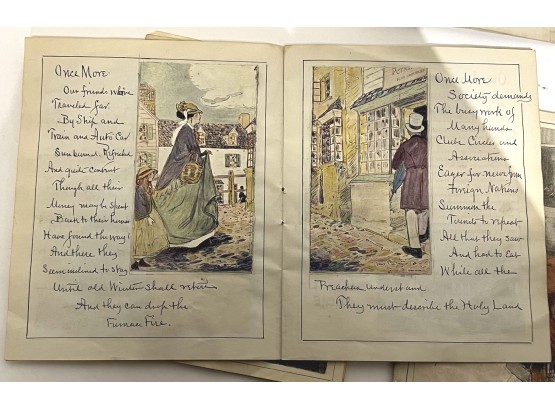 Once More
Our friends who've
Traveled far
By Ship and
Train and Auto Car
Sunburned, Refreshed
And quite content
Though all their
Money may be Spent
Back to their homes
Have found the way!
And there they
Seem inclined to stay
Until old Winter shall retire
And they can drop the
Furnace Fire.
Once More
Society demands
The busy work of
Many hands
Clubs Circles and
Associations
Eager for news from
Foreign Nations
Summon the
Tourists to repeat
All that they saw
And had to Eat
While all the
Preachers understand
They must describe the Holy Land